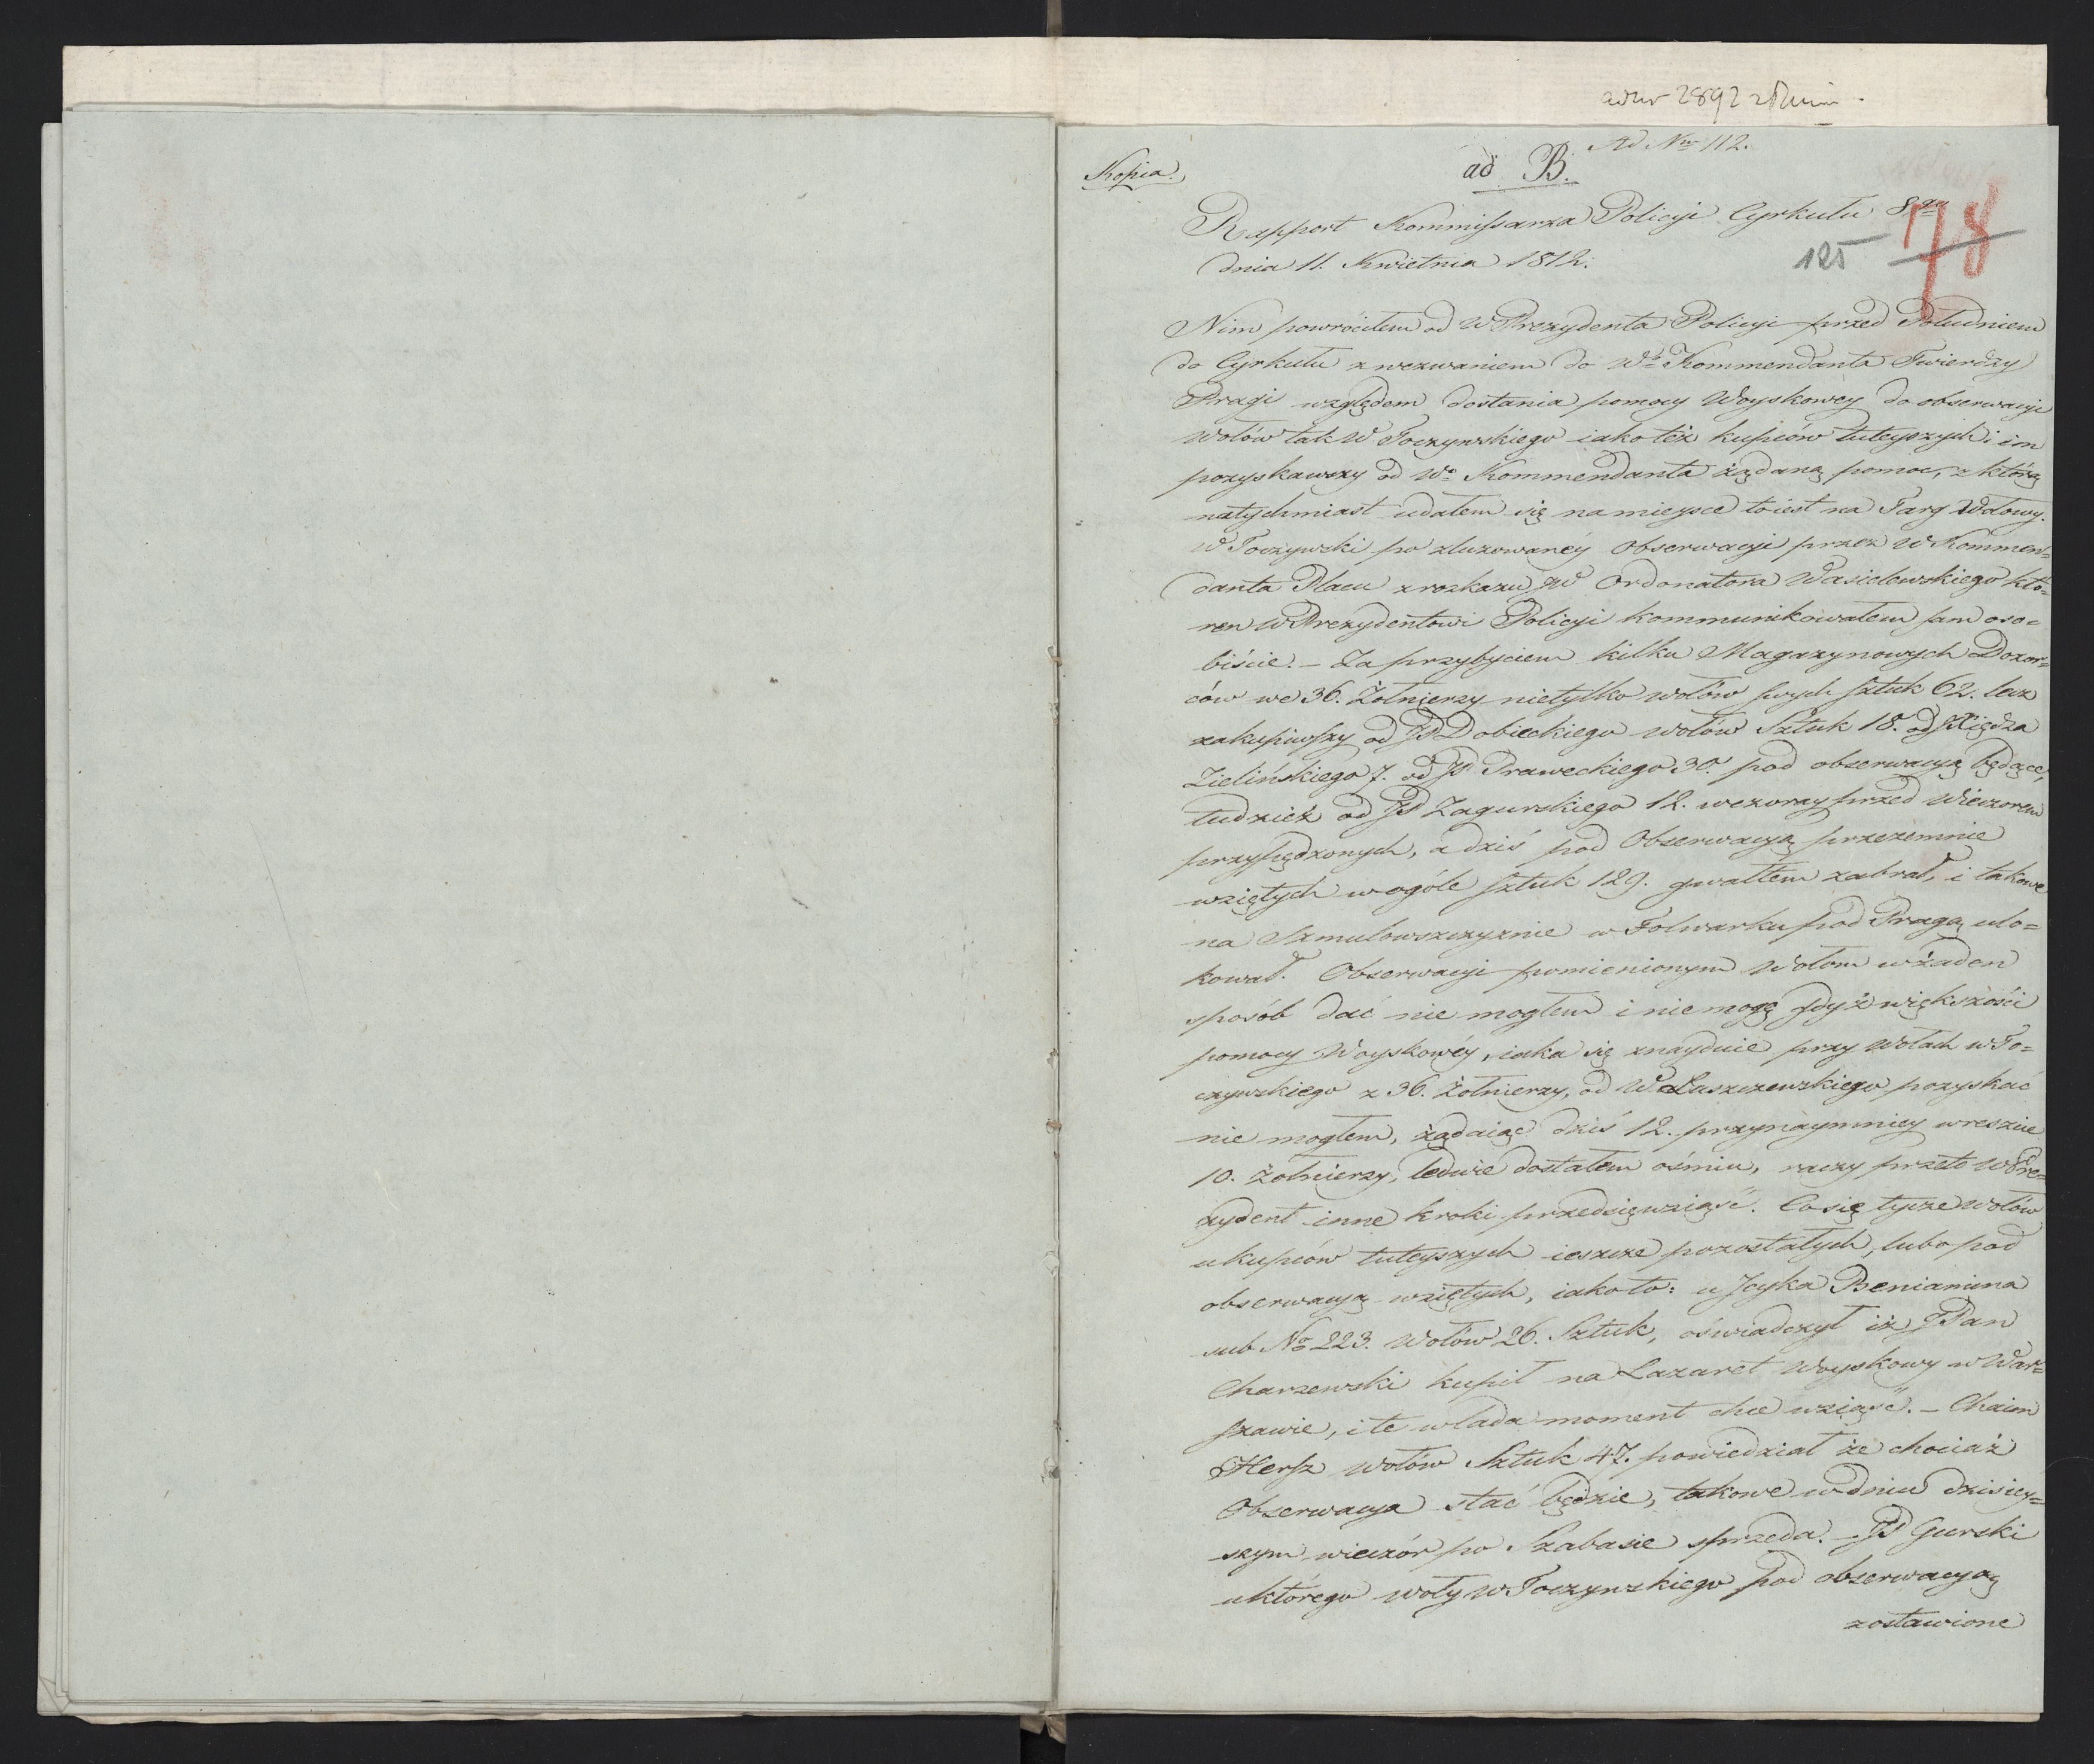 2892
Ad Nro 112.
Kopia.
ad B.
Rapport Kommissarza Policyi Cyrkułu 8go
dnia 11. Kwietnia 1812.
125 78
Nim powróciłem od W Prezydenta Policyi przed Południem
do Cyrkułu z wezwaniem do Wo Kommendanta Twierdzy
Pragi względem dostania pomocy Woyskowey do obserwacyi
wołów tak W Toczynskiego iako też kupców tuteyszych i im
pozyskawszy od Wo Kommendanta żądaną pomoc, z którą
natychmiast udałem się na mieysce to iest na Targ Wołowy.
W Toczywski po zluzowaney Obserwacyi przez W Kommen=
danta Placu z rozkazu JW Ordonatora Wasielewskiego któ=
ren W Prezydentowi Policyi kommunikowałem sam oso=
biście. – Za przybyciem kilku Magazynowych Dozor=
ców we 36. Żołnierzy nietylko wołów swych sztuk 62. lecz
zakupiwszy od JP Dobieckiego wołów Sztuk 18. od Xiędza
Zielińskiego 7. od JP Praweckiego 30. pod obserwacyą będące,
tudzież od JP Zagurskiego 12. wczoray przed wieczorem
przypędzonych, a dziś pod Obserwacyą przezemnie
wziętych w ogóle sztuk 129. gwałtem zabrał, i takowe
na Szmulowszczyznie w Folwarku pod Pragą ulo=
kował. Obserwacyi pomienionym Wołom w żaden
sposób dać nie mogłem i nie mogę gdyż większości
pomocy Woyskowéy, iaka się znayduie przy wołach W To=
czywskiego z 36. Żołnierzy, od W Łuszczewskiego pozyskać
nie mogłem, żądaiąc dziś 12. przynaymniey wreszcie
10. Żołnierzy, ledwie dostałem ośmiu, raczy przeto W Pre=
zydent inne kroki przedsięwziąść. Co się tycze wołów
u kupców tuteyszych ieszcze pozostałych, lubo pod
obserwacyą wziętych, iako to: u Jcyka Beniamina
sub No 223. wołów 26. Sztuk, oświadczył iż JPan
Charzewski kupił na Lazaret Woyskowy w War=
szawie, i te w lada moment chce wziąść. – Chaim
Hersz wołów Sztuk 47. powiedział że chociaż
Obserwacya stać będzie, takowe w dniu dzisiey=
szym wieczór po Szabasie sprzeda. – JP Gurski
u którego woły W Toczynskiego pod obserwacyą
zostawione